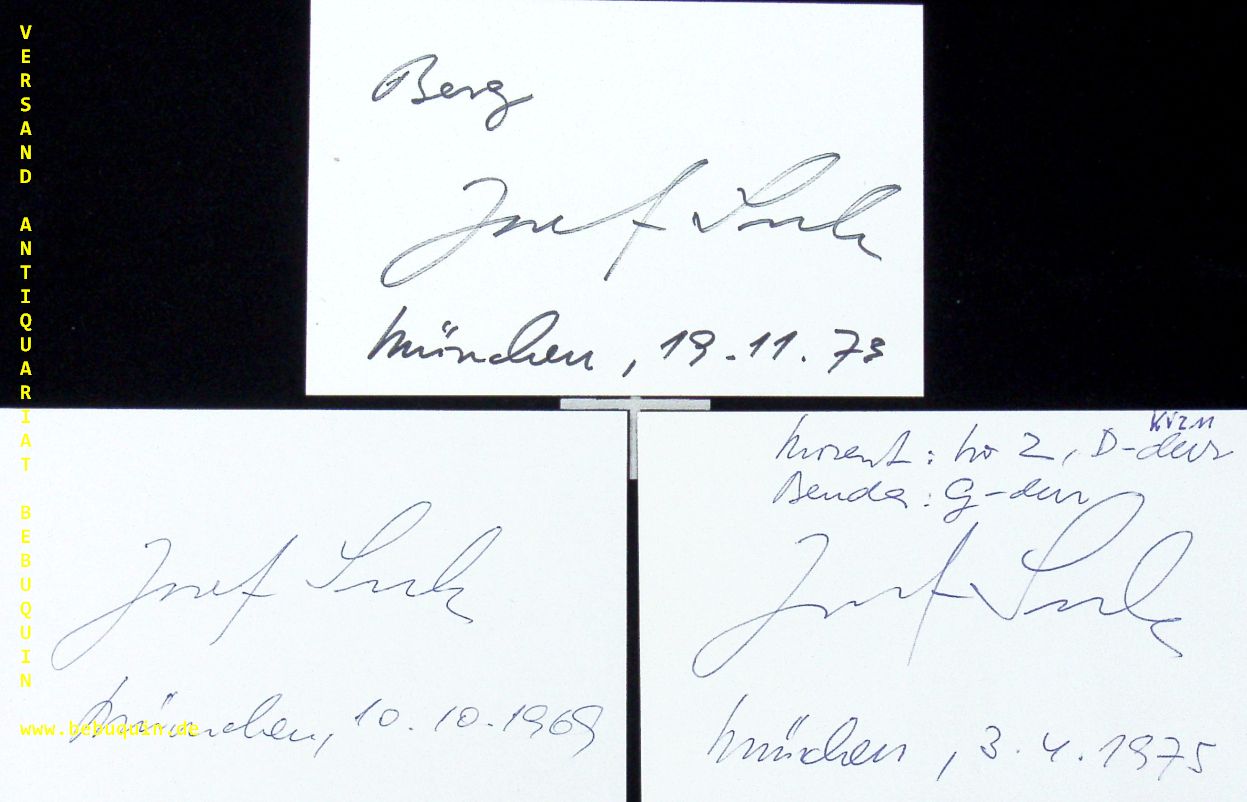 VERSAND ANTIQUARIAT BEBUQUIN
www.bebuquin.de
Berg
Josef Suk
München, 19.11.73
Josef Suk
München, 10.10.1969
KV 211
Mozart: No 2, D-dur
Benda: G-dur
Josef Suk
München, 3.4.1975